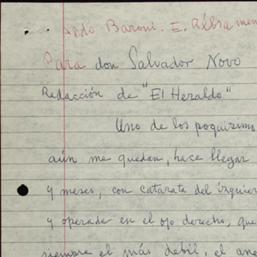 Aldo Baroni. E. Abramen
Para don Salvador Novo
Redacción de "El Heraldo"
Uno de los poquísimos
aún me quedan, hace llegar
y meses, con catarata del izquier
y operado en el ojo derecho, que
siempre el más debil, el ane